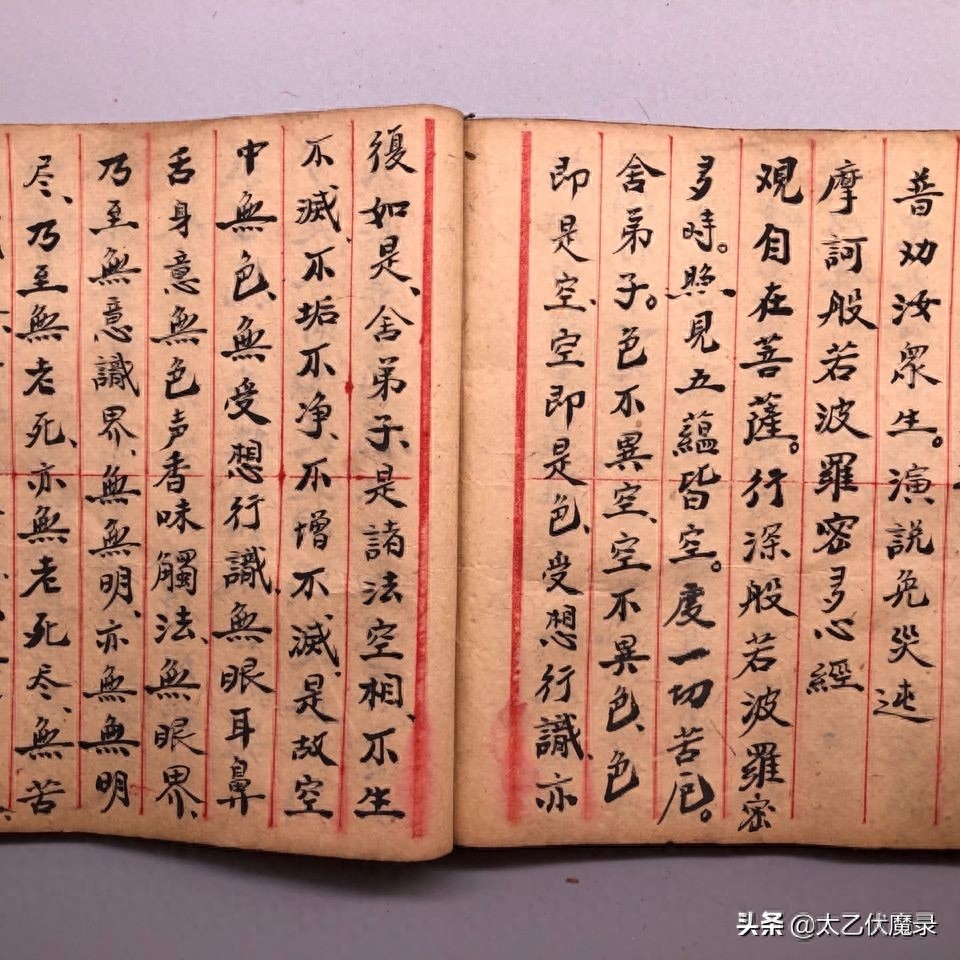 普劝汝眾生。演説免災迍
摩訶般若波羅密多心經
覌自在菩薩。行深般若波羅密
多時。照見五蘊皆空。度一切苦厄。
舍弟子。色不異空、空不異色、色
即是空、空即是色、受想行識、亦
復如是、舍弟子、是諸法空相、不生
不滅、不垢不净、不增不滅、是故空
中無色、無受想行識、無眼耳鼻
舌身意無色声香味觸法、無眼界、
乃至無意識界、無無明、亦無無明
尽、乃至無老死、亦無老死尽、無苦
头条 @太乙伏魔录